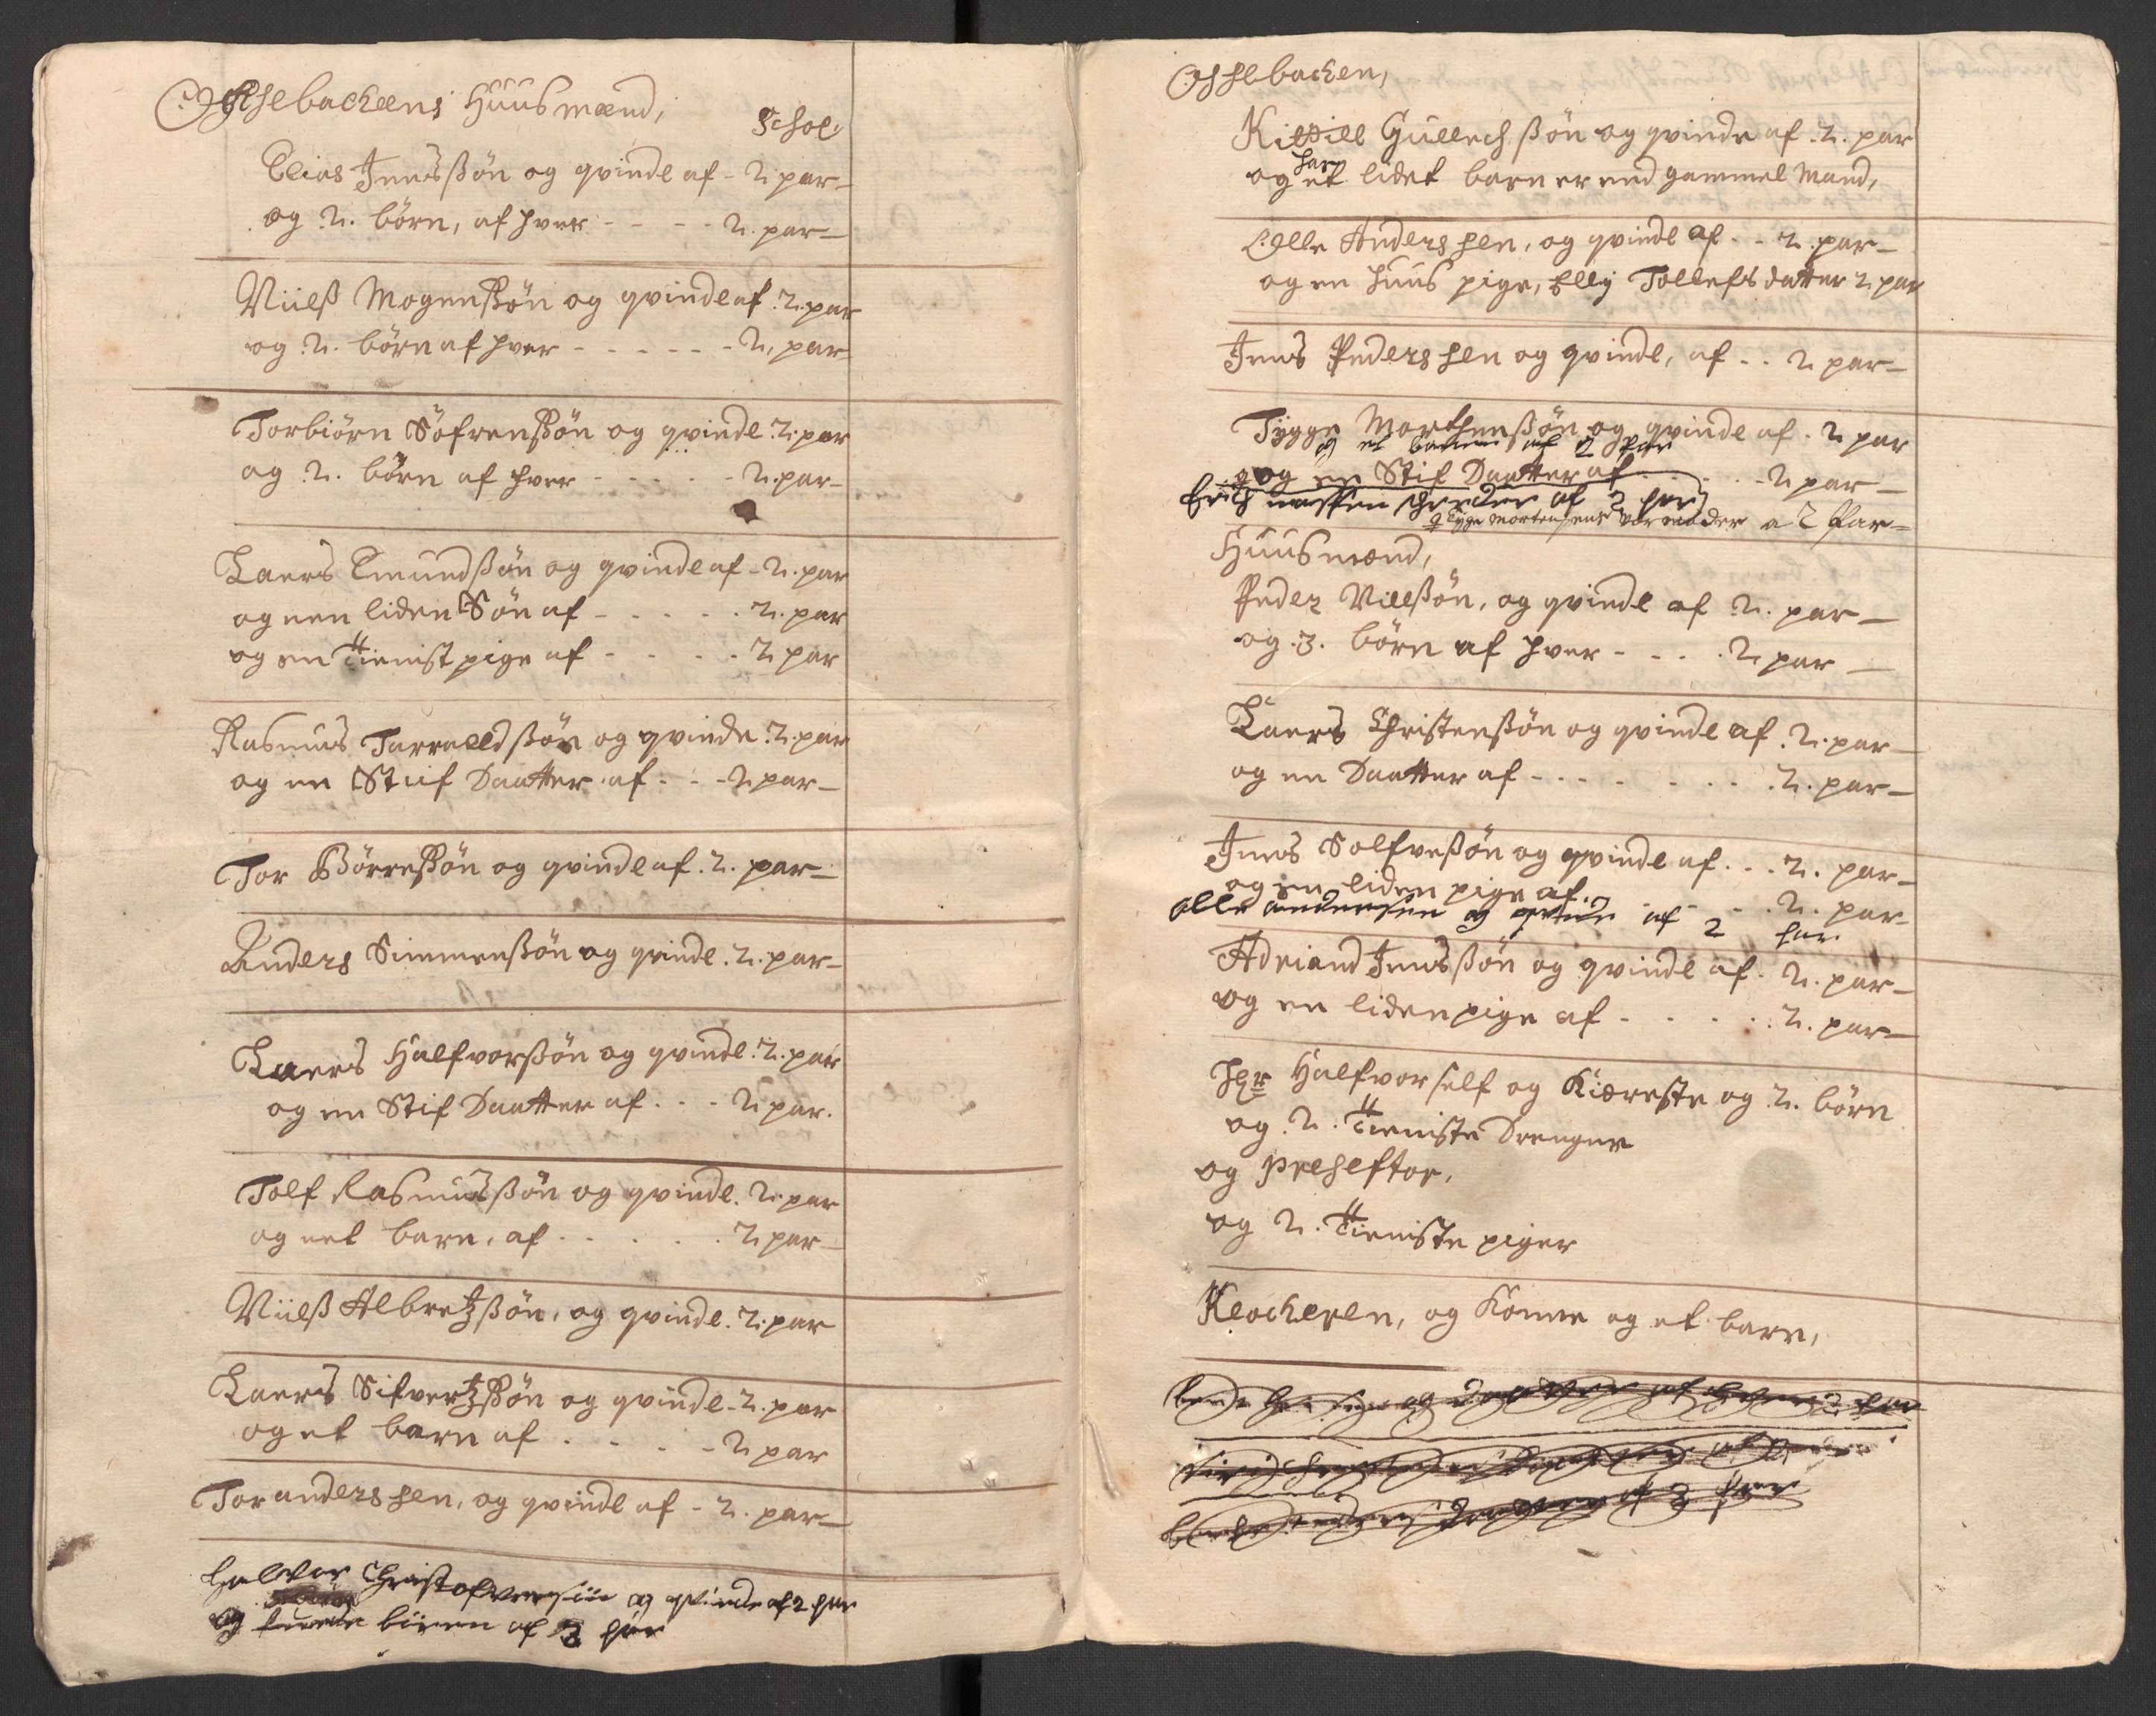 Huusmænd,
Schoe
Elias Jensßøn og qvinde af - 2 par
og 2. børn, af hver - - - - 2. par
Niilß Mogenßøn og qvinde af 2. par
og 2. børn af hver - - - - - 2, par
Torbiørn Søfrenßøn og qvinde 2. par
og 2. børn af hver - - - - - 2. par
Laers Emundßøn og qvinde af - 2. par
og een liden Søn af - - - - - 2. par
og en Tienist pige af - - - - 2 par
Rasmus Tarraldßøn og qvinde 2. par
og en Stiif Daatter af - - - 2 par
Tor Børreßøn og qvinde af 2. par
Anders Simmenßøn og qvinde 2. par
Laers Halfvorßøn og qvinde 2. par
og en Stif Daatter af - - - 2 par.
Tolf Rasmusßøn og qvinde 2. par
og eet barn, af - - - - - 2 par
Niilß Albretzßøn, og qvinde. 2. par
Laers Sifvertzßøn og qvinde - 2. par
og et barn af - - - - 2 par
Tor anderssen, og qvinde af - 2. par
Halvor Christofversøn og qvinde af 2 par
og børen af 3 par
Kittill Gullechßøn og qvinde af 2. par
og har et lidet barn er end gammel Mand,
Olle Anderssen, og qvinde af - - 2. par
og en huus pige, Elly Tollefsdatter 2 par
Jens Pederssen og qvinde, af - - 2 par
Tygge Morthenßøn og qvinde af - 2 par
og et baren af 2 par
og en Stif Daatter af - - - - 2 par
Erich af 2 par
Tyge Mortensens vermoder a 2 Par
Huusmænd,
Peder Nielßøn, og qvinde af 2. par
og 3. børn af hver - - - 2 par
Laers Christenßøn og qvinde af 2. par
og en Daatter af - - - - - - - 2. par
Jens Solfveßøn og qvinde af - - - 2. par
og en liden pige af - - - - 2. par
olle andersen og qvinde af 2 par
Adriand Jensßøn og qvinde af - 2. par
og en liden pige af - - - - - 2. par
Hr Halfvor self og Kiæreste og 2. børn
og 2. Tieniste Drenger
og
og 2. Tieniste piger
Klocheren, og Konne og et barn,